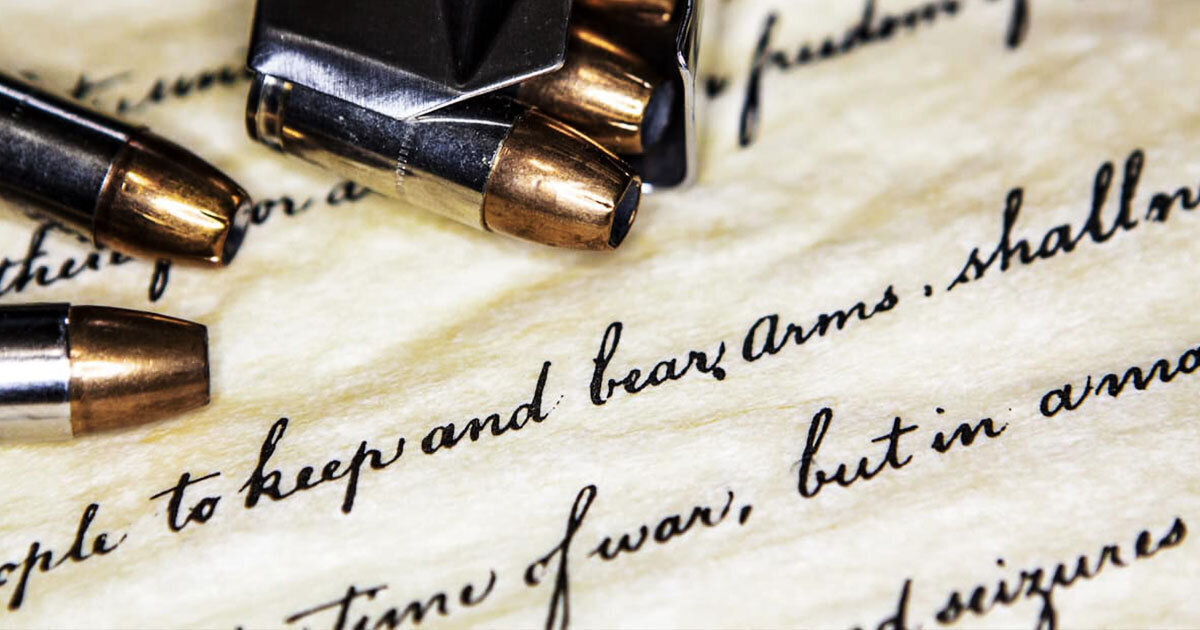 freedom
or a
ople to keep and bear arms, shall n
time of war, but in a ma
d seizures